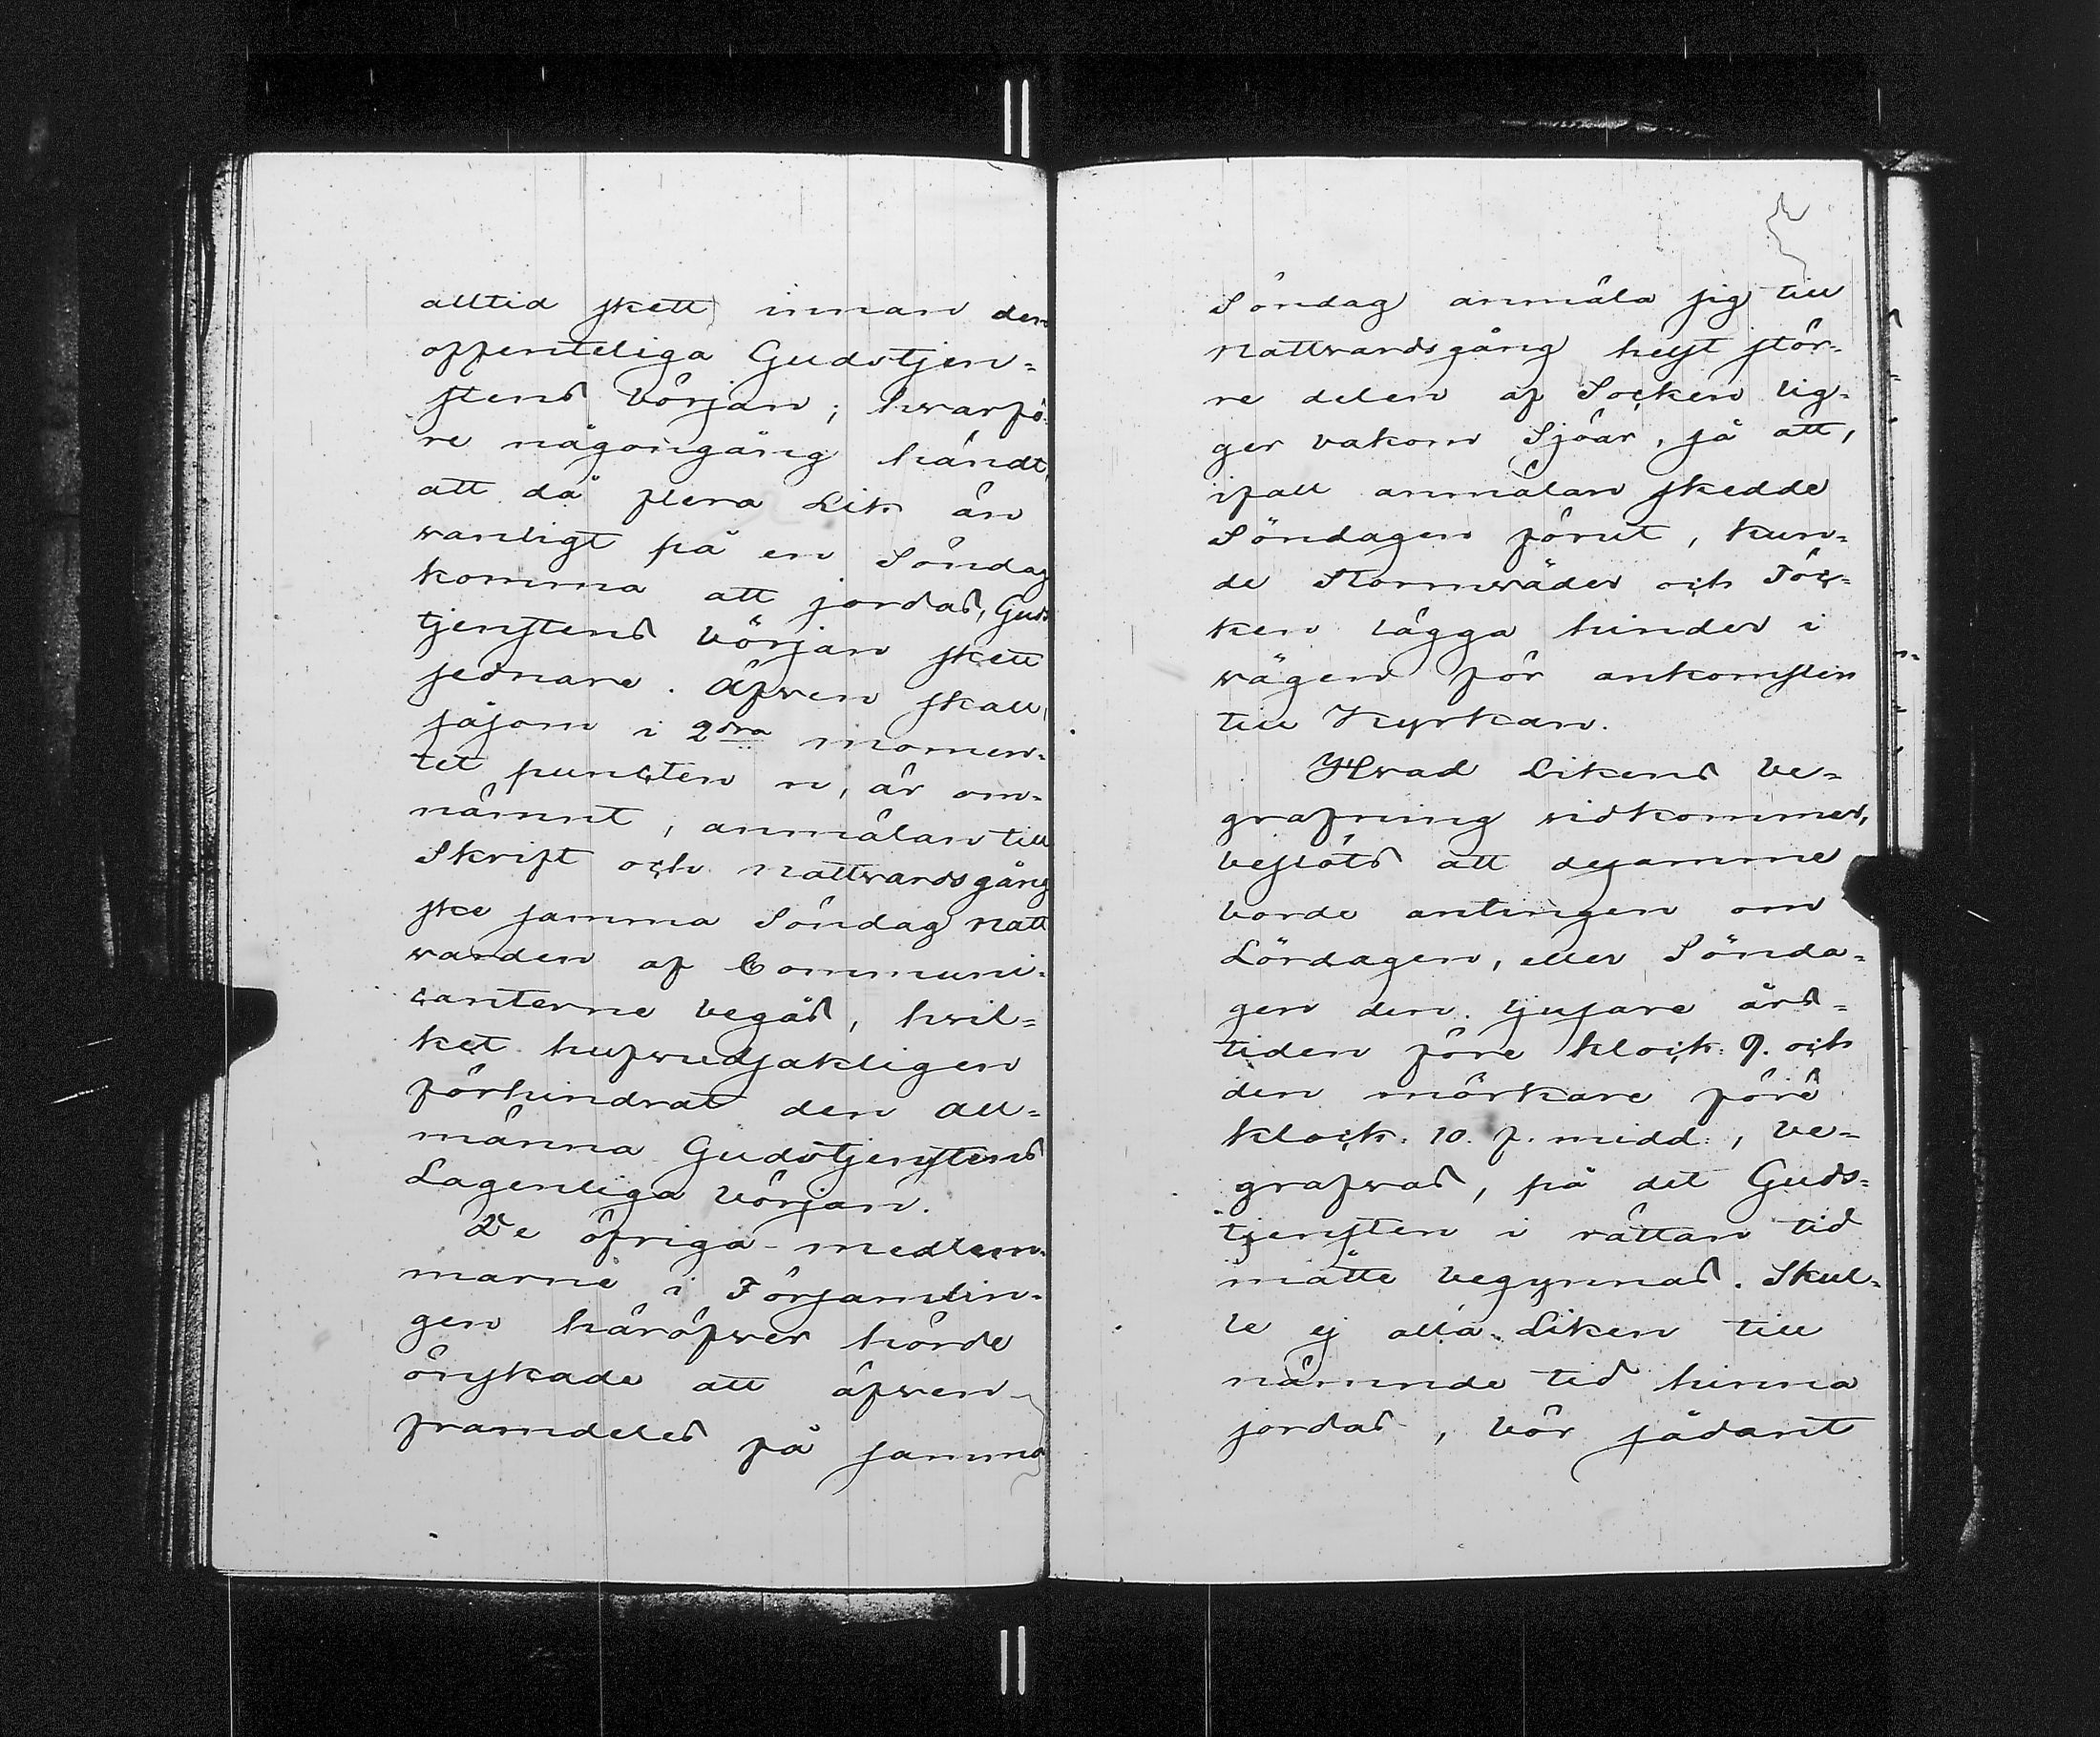 alltid skett innan den
offenteliga Gudstjen-
stens början; hvarfö-
re någongång händt,
att då flera Lik än
vanligt på en Söndag
komma att jordas, Guds
tjenstens början skett
sednare. Äfven skall,
såsom i 2dra momen-
tet puncten n, är om-
nämnt, anmälan till
Skrift och nattvardsgång
ske samma Söndag natt
varden af Communi-
canterne begås, hvil-
ket hufvudsakligen
förhindrat den all-
männa Gudstjenstens
Lagenliga början.
De öfriga medlem-
marne i Församlin-
gen häröfver hörde
önskade att äfven
framdeles få samma
Söndag anmäla sig till
nattvardsgång helst stör-
re delen af Socken lig-
ger bakom Sjöar, så att,
ifall anmälan skedde
Söndagen förut, kun-
de Stormväder och Töc-
ken lägga hinder i
vägen för ankomsten
till Kyrkan.
Hvad Likens be-
grafning vidkommer,
beslöts att desamme
borde antingen om
Lördagen, eller Sönda-
gen den ljusare års-
tiden före klock. 9. och
den mörkare före
klock. 10. f. midd., be-
grafvas, på det Guds-
tjensten i rättan tid
måtte begynnas. Skul-
le ej alla Liken till
nämnde tid hinna
jordas, bör sådant